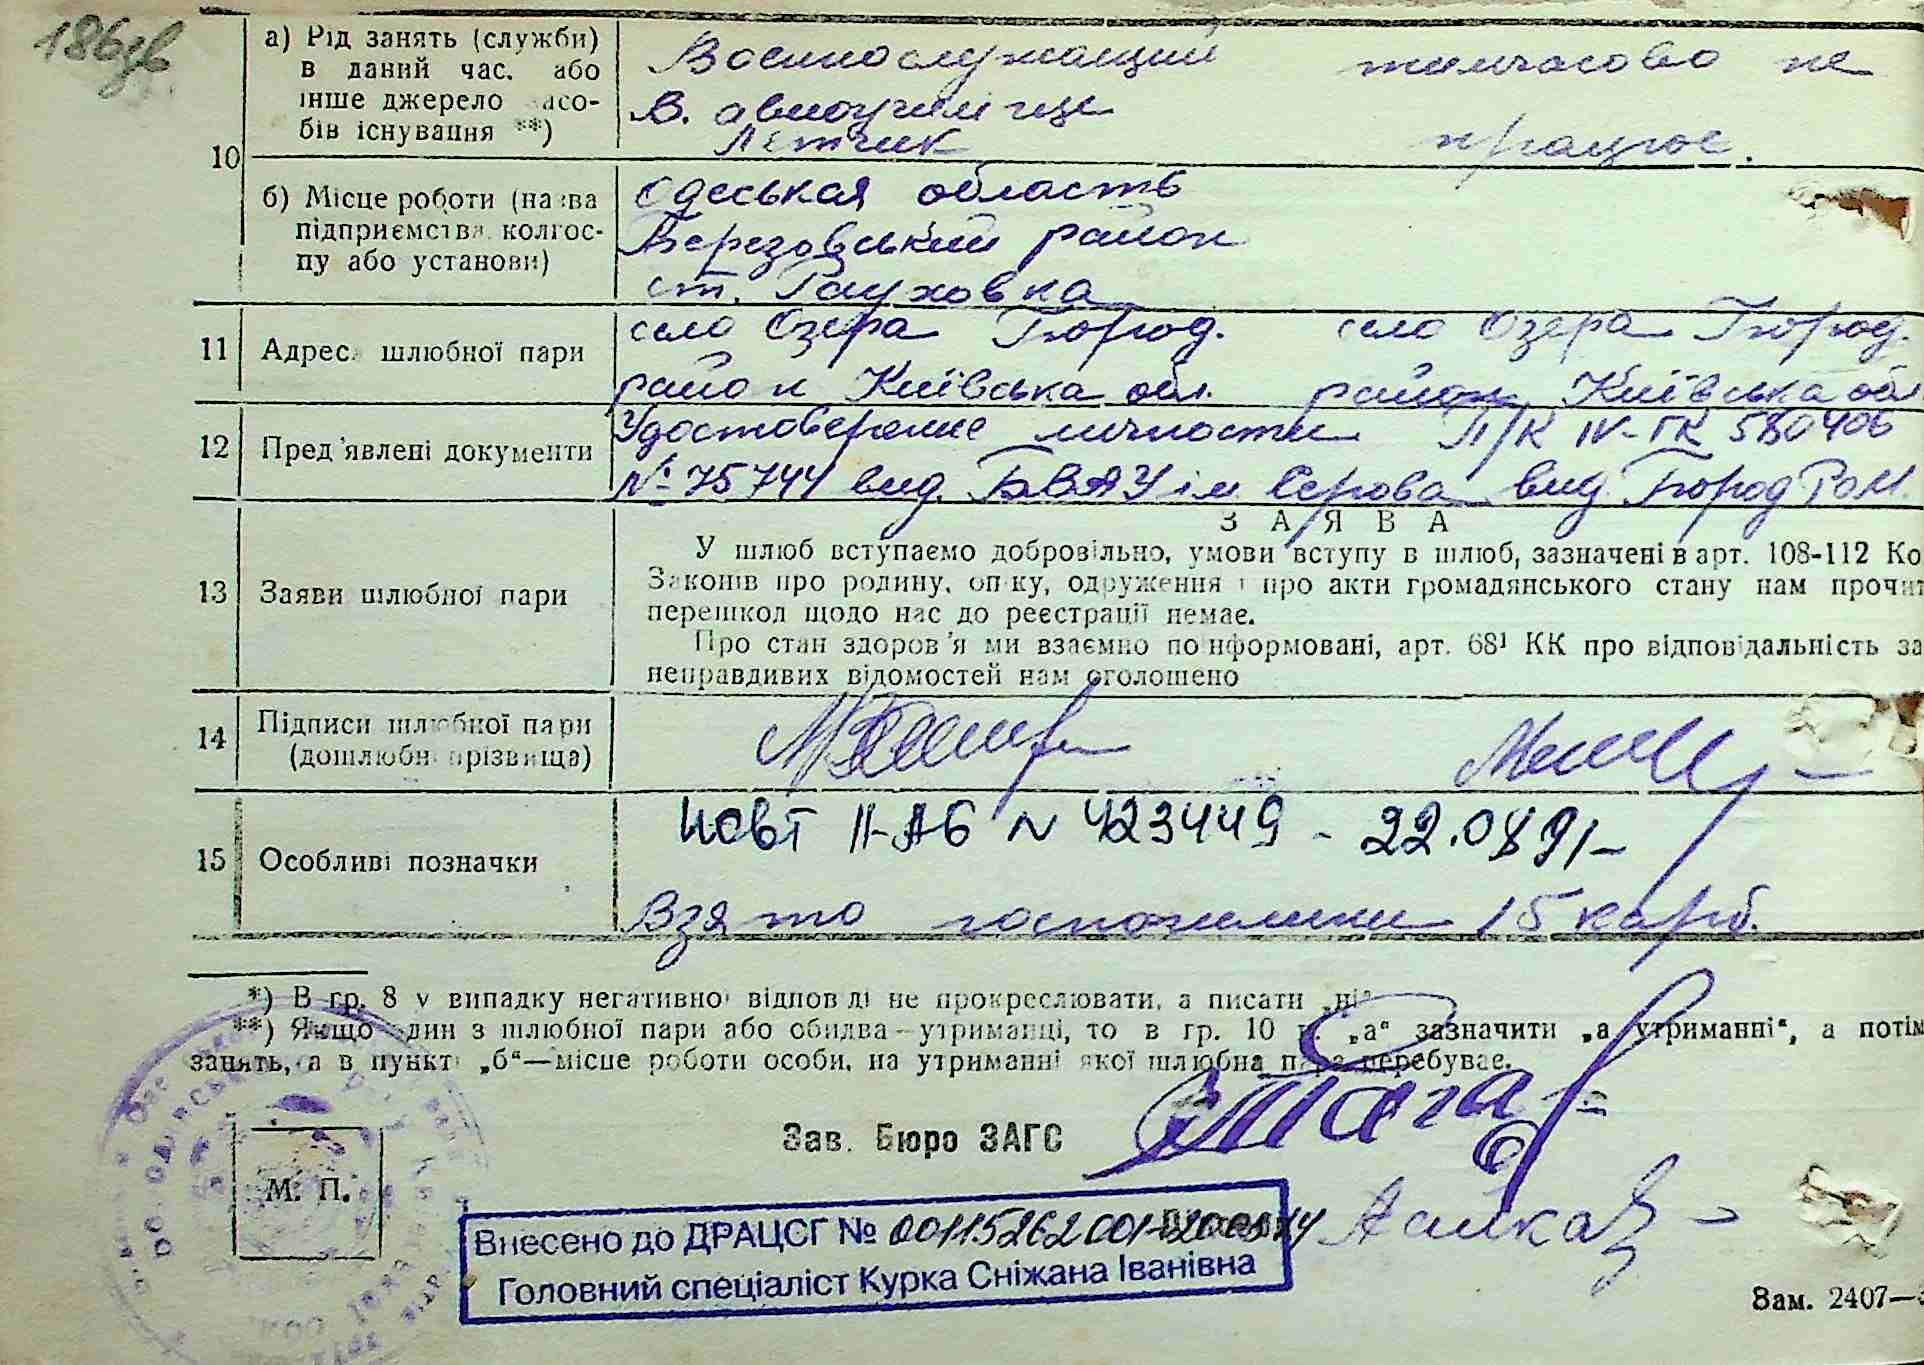 186зв
10
а) Рід занять (служби) в даний час. або інше джерело засо-бів існування **)
Военнослужащий
В. авиоучилище
Летчик
тимчасово не
працює.
б) Місце роботи (назва підприємства, колгос-пу або установи)
Одеськая область
Березовський район
ст. Рауховка
11 Адреса шлюбної пари
село Озера Бород.
район Київська обл.
село Озера Бород.
район Київська обл
12 Пред'явлені документи
Удостоверение личности
№ 75744 вид. БВАУ ім Сєрова
П/К IV-ГК 580406
вид. Бород РОМ.
13 Заяви шлюбної пари
З А Я В А
У шлюб вступаємо добровільно, умови вступу в шлюб, зазначені в арт. 108-112 Ко
Законів про родину, опіку, одруження і про акти громадянського стану нам прочит
перешкод щодо нас до реєстрації немає.
Про стан здоров'я ми взаємно поінформовані, арт. 68¹ КК про відповідальність за
неправдивих відомостей нам оголошено
14 Підписи шлюбної пари
(дошлюбні прізвища)
15 Особливі позначки
повт II-АБ N 423449 - 22.0891-
Взято госпошлини 15 карб.
*) В гр. 8 у випадку негативної відповіді не прокреслювати, а писати „ні“
**) Якщо один з шлюбної пари або обидва—утриманці, то в гр. 10 п. „а“ зазначити „а утриманні“, а потім
занять, а в пункті „б“—місце роботи особи, на утриманні якої шлюбна пара перебуває.
Зав. Бюро ЗАГС
М. П.
Внесено до ДРАЦСГ №
Головний спеціаліст Курка Сніжана Іванівна
Зам. 2407—